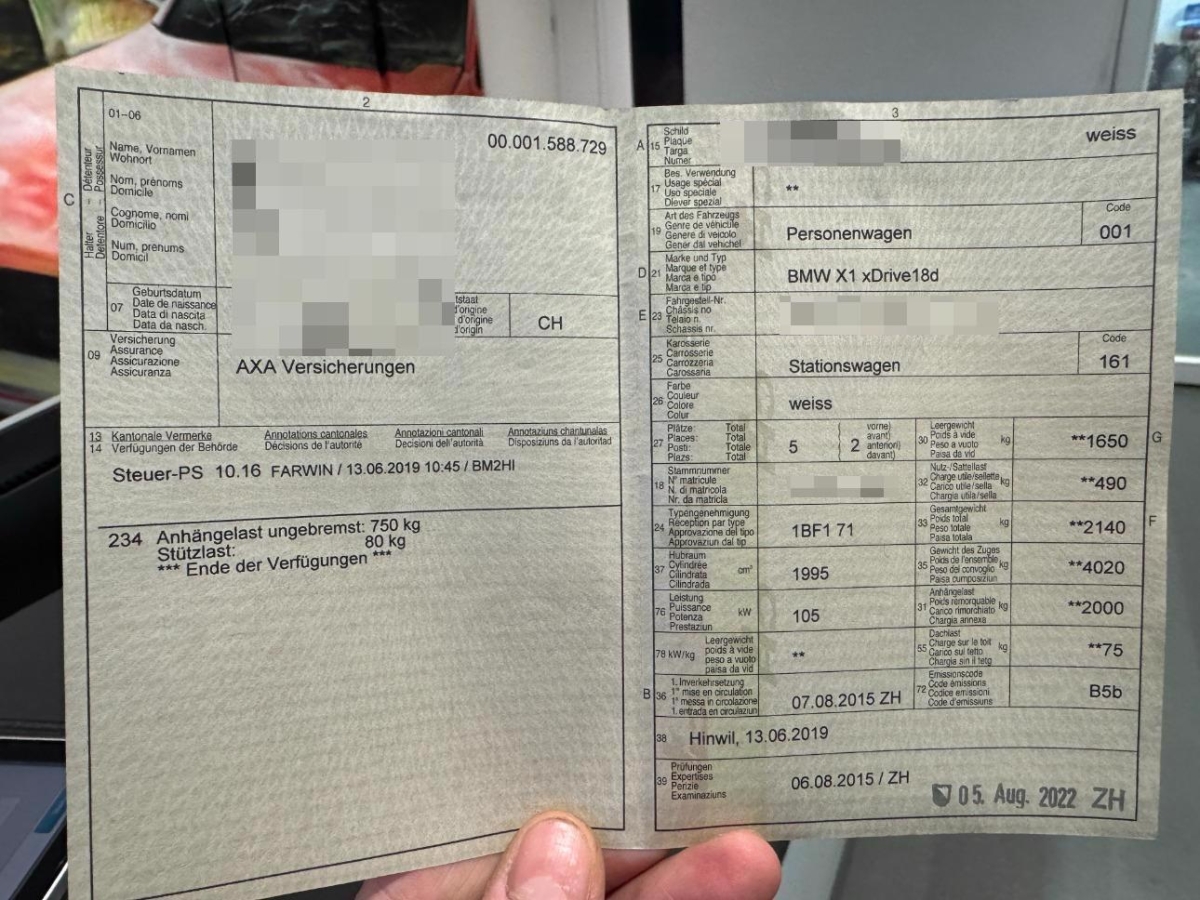 2
01-06
00.001.588.729
C
Halter - Détenteur
Detentore - Possessur
Name, Vornamen
Wohnort
Nom, prénoms
Domicile
Cognome, nomi
Domicilio
Num, prenums
Domicil
07
Geburtsdatum
Date de naissance
Data di nascita
Data da nasch.
tstaat
d'origine
d'origine
d'origin
CH
09
Versicherung
Assurance
Assicurazione
Assicuranza
AXA Versicherungen
13 Kantonale Vermerke Annotations cantonales Annotazioni cantonali Annotaziuns chantunalas
14 Verfügungen der Behörde Décisions de l'autorité Decisioni dell'autorità Disposiziuns da l'autoritad
Steuer-PS 10.16 FARWIN / 13.06.2019 10:45 / BM2HI
234 Anhängelast ungebremst: 750 kg
Stützlast: 80 kg
*** Ende der Verfügungen ***
3
A 15
Schild
Plaque
Targa
Numer
weiss
17
Bes. Verwendung
Usage spécial
Uso speciale
Diever spezial
**
19
Art des Fahrzeugs
Genre de véhicule
Genere di veicolo
Gener dal vehichel
Personenwagen
Code
001
D 21
Marke und Typ
Marque et type
Marca e tipo
Marca e tip
BMW X1 xDrive18d
E 23
Fahrgestell-Nr.
Châssis no
Telaio n.
Schassis nr.
25
Karosserie
Carrosserie
Carrozzeria
Carossaria
Stationswagen
Code
161
26
Farbe
Couleur
Colore
Colur
weiss
27
Plätze: Total
Places: Total
Posti: Totale
Plazs: Total
5
2
vorne)
avant)
anteriori)
davant)
30
Leergewicht
Poids à vide
Peso a vuoto
Paisa da vid
kg
**1650
G
18
Stammnummer
N° matricule
N. di matricola
Nr. da matricla
32
Nutz-/Sattellast
Charge utile/sellette
Carico utile/sella
Chargia utila/sella
kg
**490
24
Typengenehmigung
Réception par type
Approvazione del tipo
Approvaziun dal tip
1BF1 71
33
Gesamtgewicht
Poids total
Peso totale
Paisa totala
kg
**2140
F
37
Hubraum
Cylindrée
Cilindrata
Cilindrada
cm³
1995
35
Gewicht des Zuges
Poids de l'ensemble
Peso del convoglio
Paisa cumposiziun
kg
**4020
76
Leistung
Puissance
Potenza
Prestaziun
kW
105
31
Anhängelast
Poids remorquable
Carico rimorchiato
Chargia annexa
kg
**2000
78 kW/kg
Leergewicht
poids à vide
peso a vuoto
paisa da vid
**
55
Dachlast
Charge sur le toit
Carico sul tetto
Chargia sin il tetg
kg
**75
B 36
1. Inverkehrsetzung
1re mise en circulation
1a messa in circolazione
1. entrada en circulaziun
07.08.2015 ZH
72
Emissionscode
Code émissions
Codice emissioni
Code d'emissiuns
B5b
38
Hinwil, 13.06.2019
39
Prüfungen
Expertises
Perizie
Examinaziuns
06.08.2015 / ZH
05. Aug. 2022 ZH